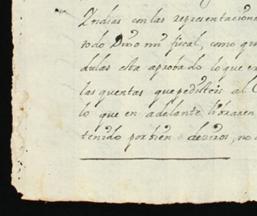 Yndias con las representacion
todo Dho mi fiscal, como que
dulas esta aprobado lo que ex
las quentas que pedisteis al C
lo que en adelante libraren
tenido por bien deciros, no